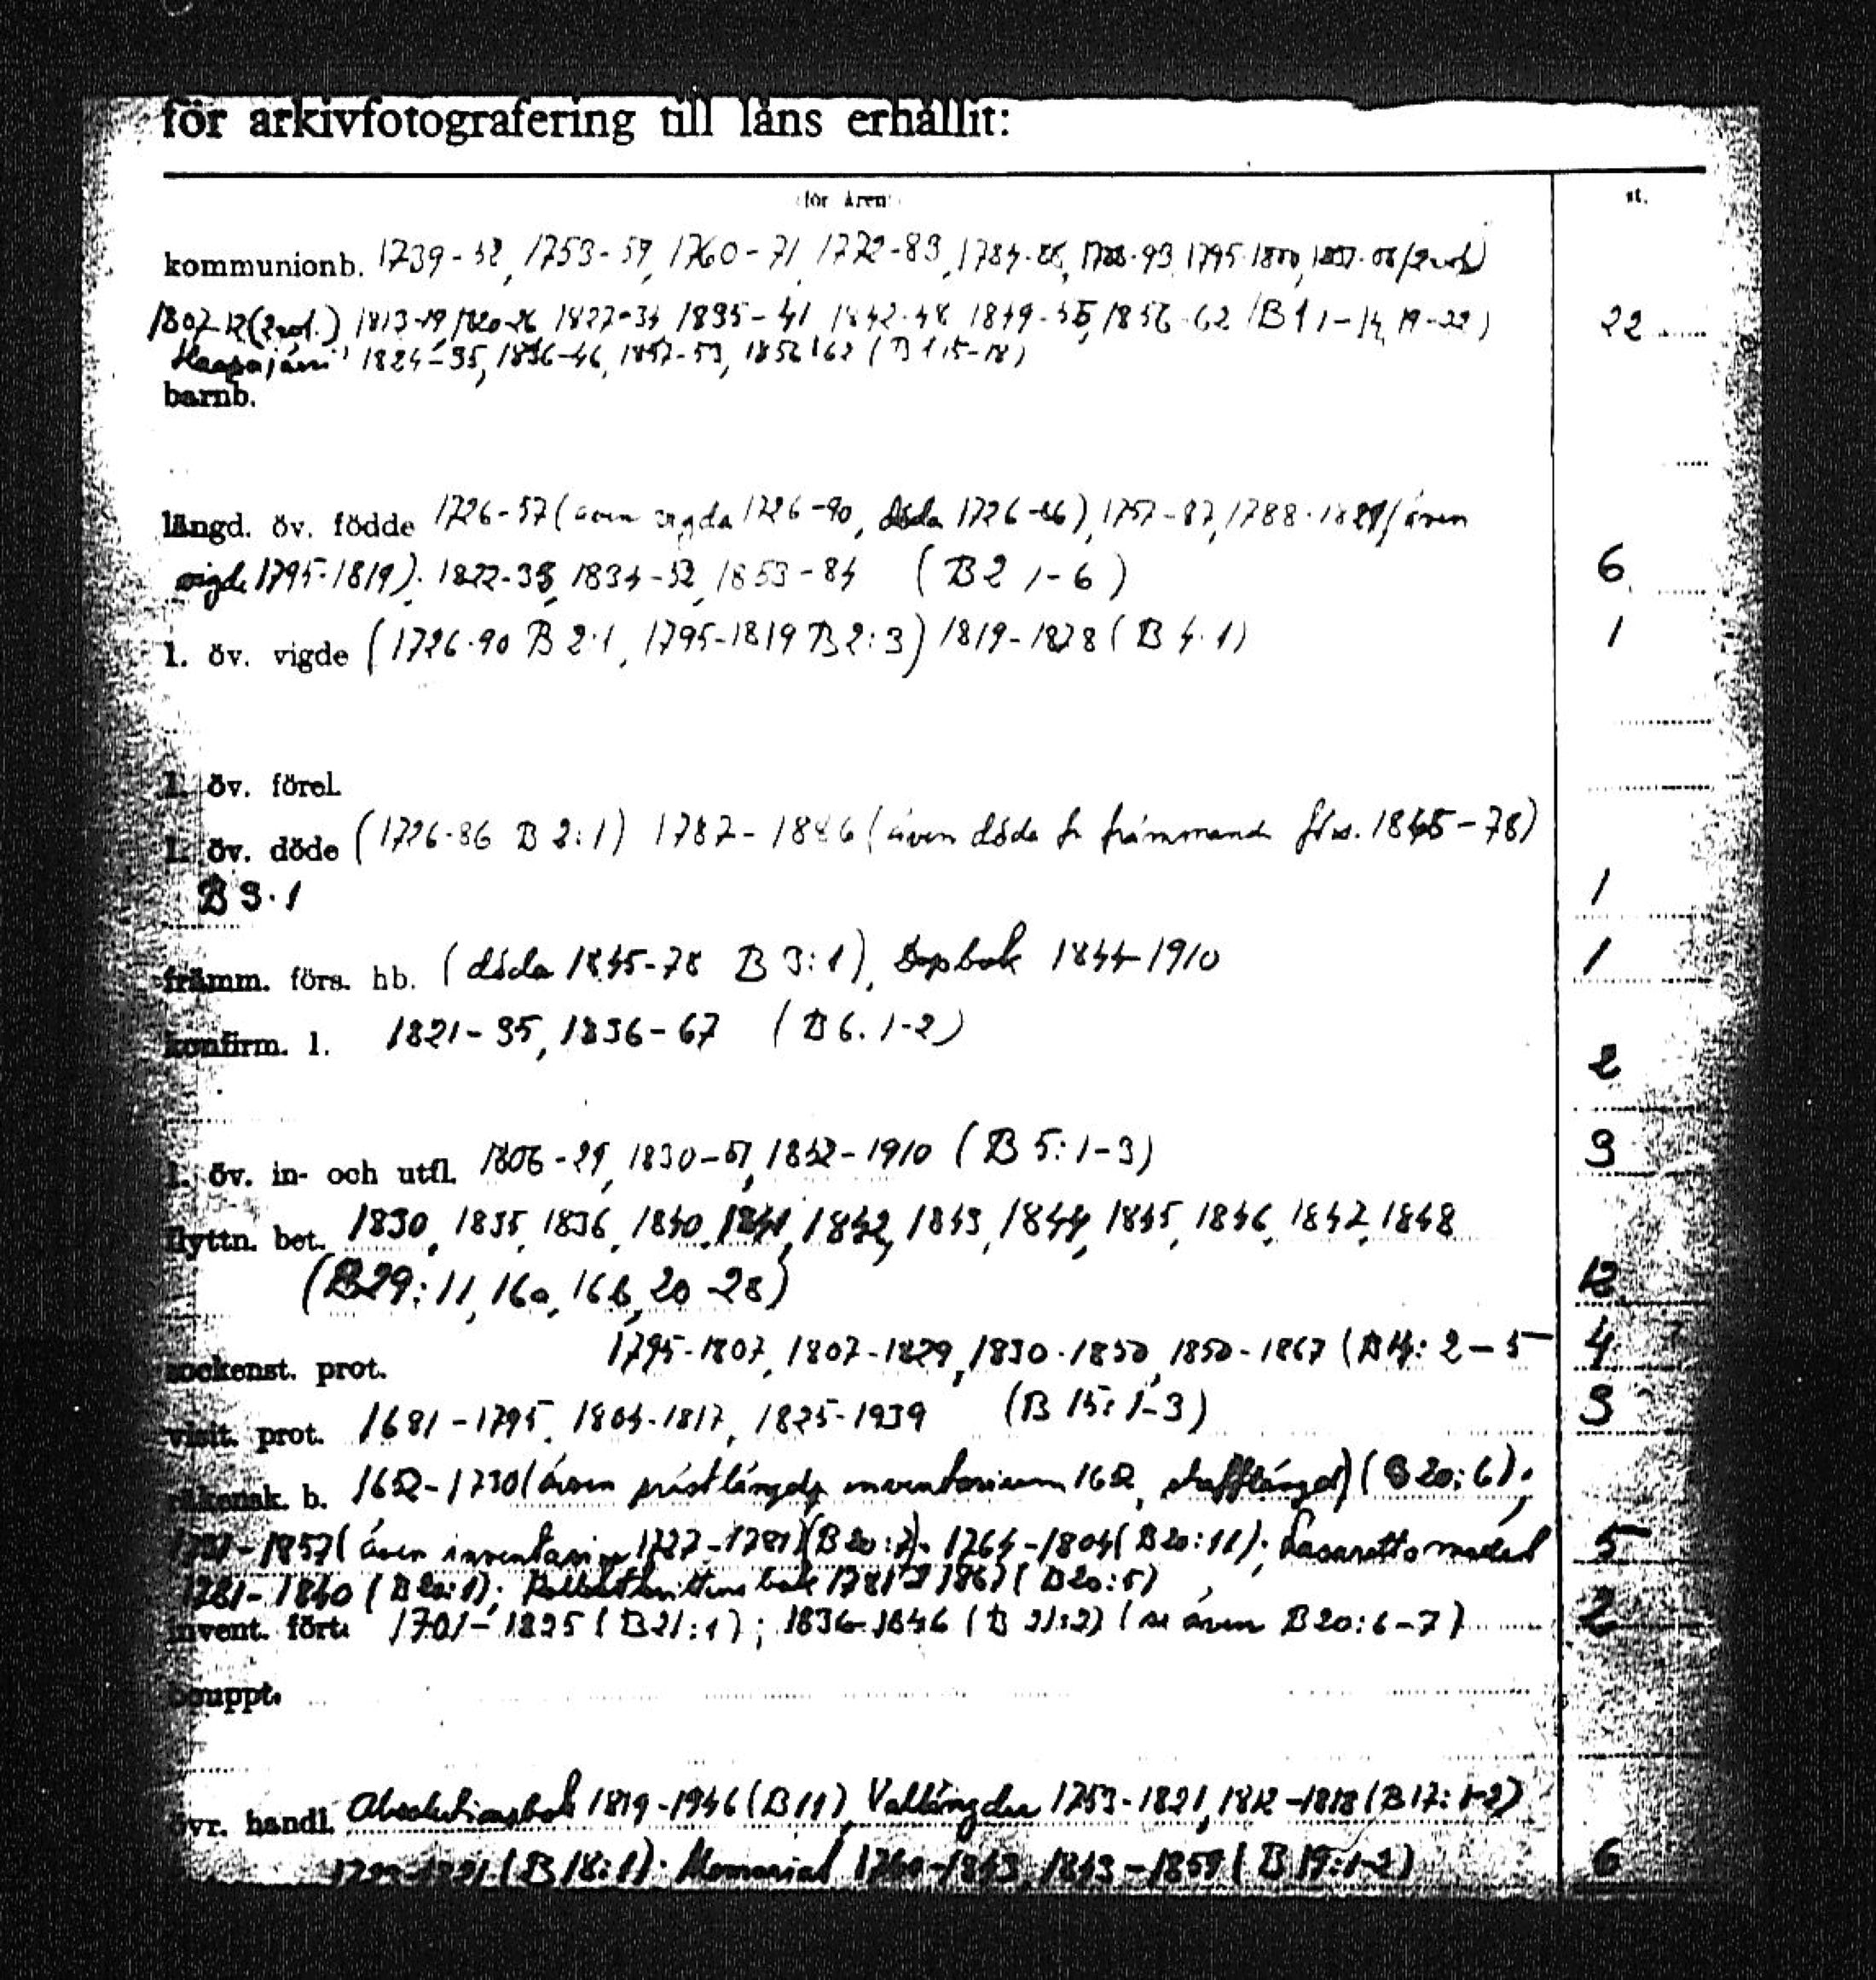 för arkivfotografering till låns erhållit:
för åren: st.
kommunionb. 1739-52, 1753-59, 1760-71, 1772-83, 1784- 1795-1800, (2 vol)
1807-12 (2 vol.) 1813-19, 1820-26, 1827-34, 1835-41, 1842-48, 1849-55, 1856-62 (B 1 1-14, 19-22) 22
Haapajärvi 1824-35, 1836-46, 1847-53, (B 1 15-18)
barnb.
längd. öv. födde 1726-57 (även vigda 1726-90, döda 1726-86), 1757-87, 1788- (även
vigde 1795-1819), 1822-33, 1834-52, 1853-84 (B 2 1-6) 6
l. öv. vigde (1726-90 B 2:1, 1795-1819 B 2:3) 1819-1878 (B 4:1) 1
l. öv. förel.
l. öv. döde (1726-86 B 2:1) 1787-1886 (även döda fr främmande förs. 1845-78)
B 3:1 1
främm. förs. hb. (döda 1845-78 B 3:1), Dopbok 1844-1910 1
konfirm. l. 1821-35, 1836-67 (B 6:1-2) 2
l. öv. in- och utfl. 1806-29, 1830-51, 1852-1910 (B 5:1-3) 3
flyttn. bet. 1830, 1835, 1836, 1840, 1841, 1842, 1843, 1844, 1845, 1846, 1847, 1848
(B29:11, 16a, 16b, 20-28) 12
sockenst. prot. 1795-1807, 1807-1829, 1830-1850, 1850-1867 (B 14: 2-5 4
visit. prot. 1681-1795, 1804-1817, 1825-1939 (B 15:1-3) 3
räkensk. b. (även inventarium (B 20:6);
-1857 (även (B 20:7); 1764-1804 (B 20:11); Lasarettsmedel 5
1781-1840 (B 20:1); (B 20:5)
invent. fört. 1701-1825 (B 21:1); 1836-1846 (B 21:2) (se även B 20:6-7) 2
bouppt.
övr. handl. Absolutionsbok 1819-1946 (B 11), Vallängder 1753-1821, 1812-1818 (B 17:1-2)
(B 18:1); Memorial 1760-1843, 1843-1859 (B 19:1-2) 6